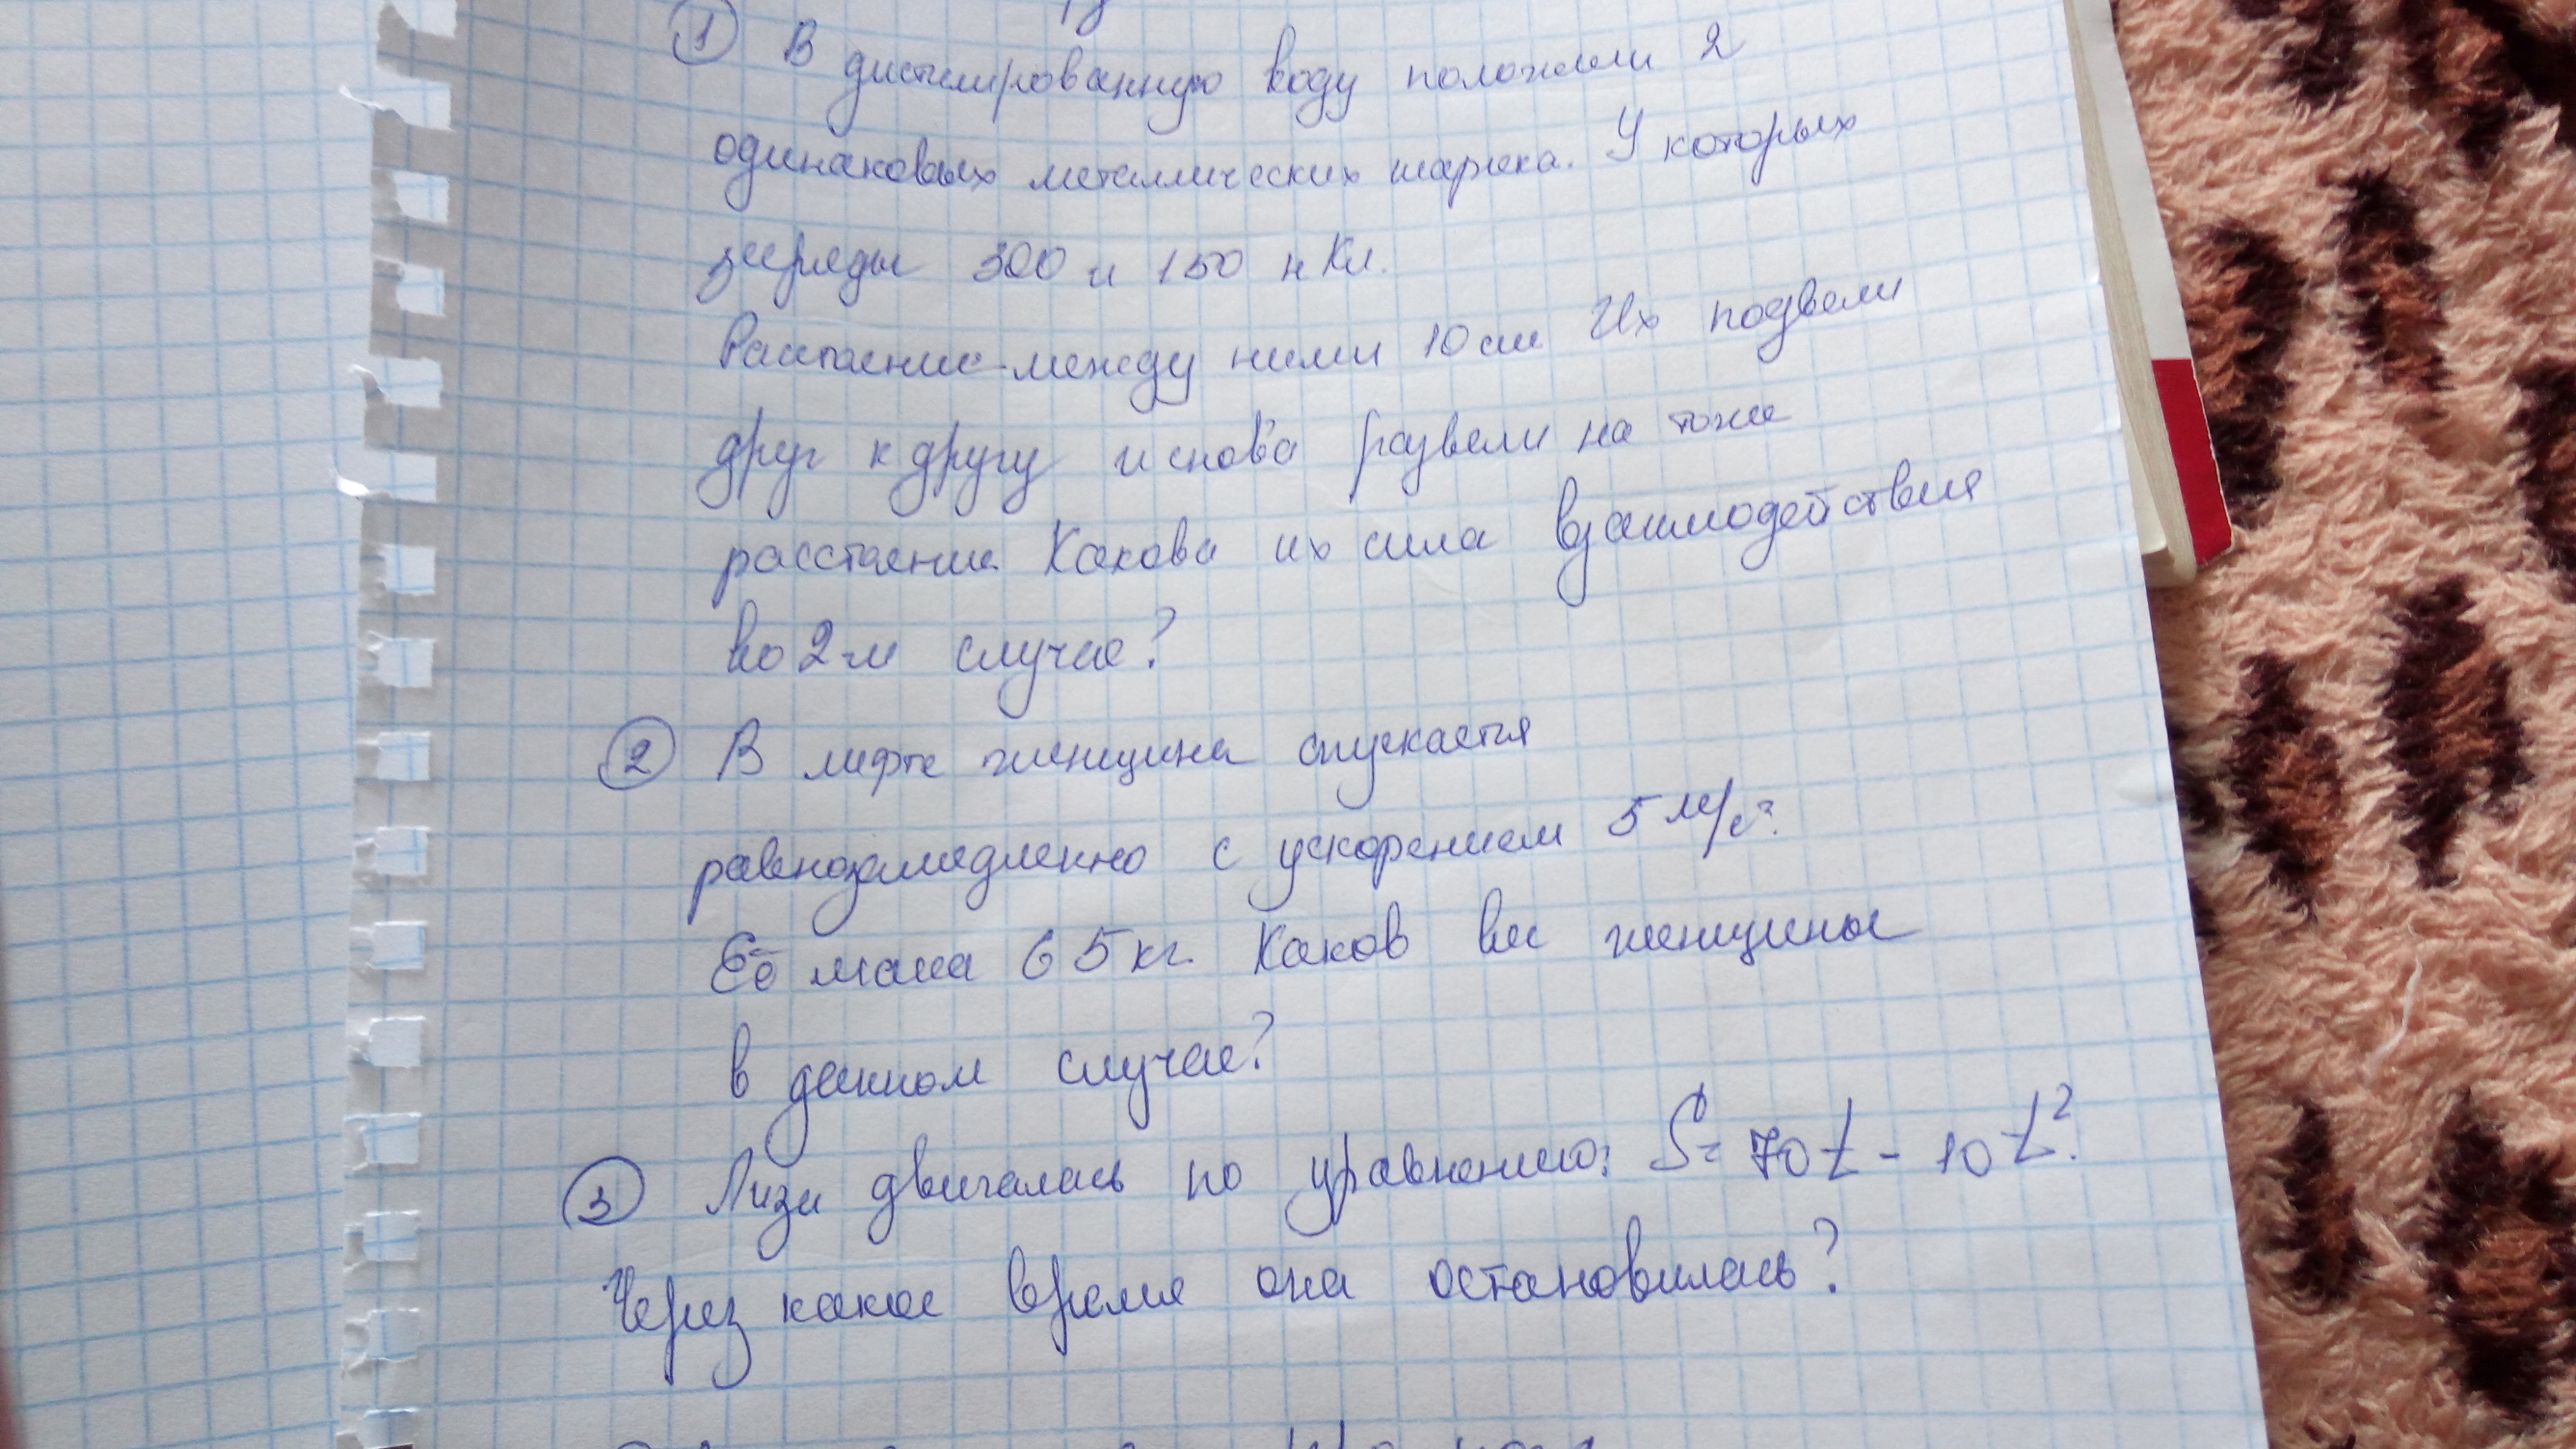 ① В дистилированную воду положили 2
одинаковых металлических шарика. У которых
заряды 300 и 150 нКл.
Расстояние между ними 10 см Их подвели
друг к другу и снова развели на тоже
расстояние. Какова их сила взаимодействия
во 2-м случае?
② В лифте женщина спускается
равнозамедленно с ускорением 5 м/с².
Её масса 65 кг. Каков вес женщины
в данном случае?
③ Лиза двигалась по уравнению: S = 70t - 10t².
Через какое время она остановилась?